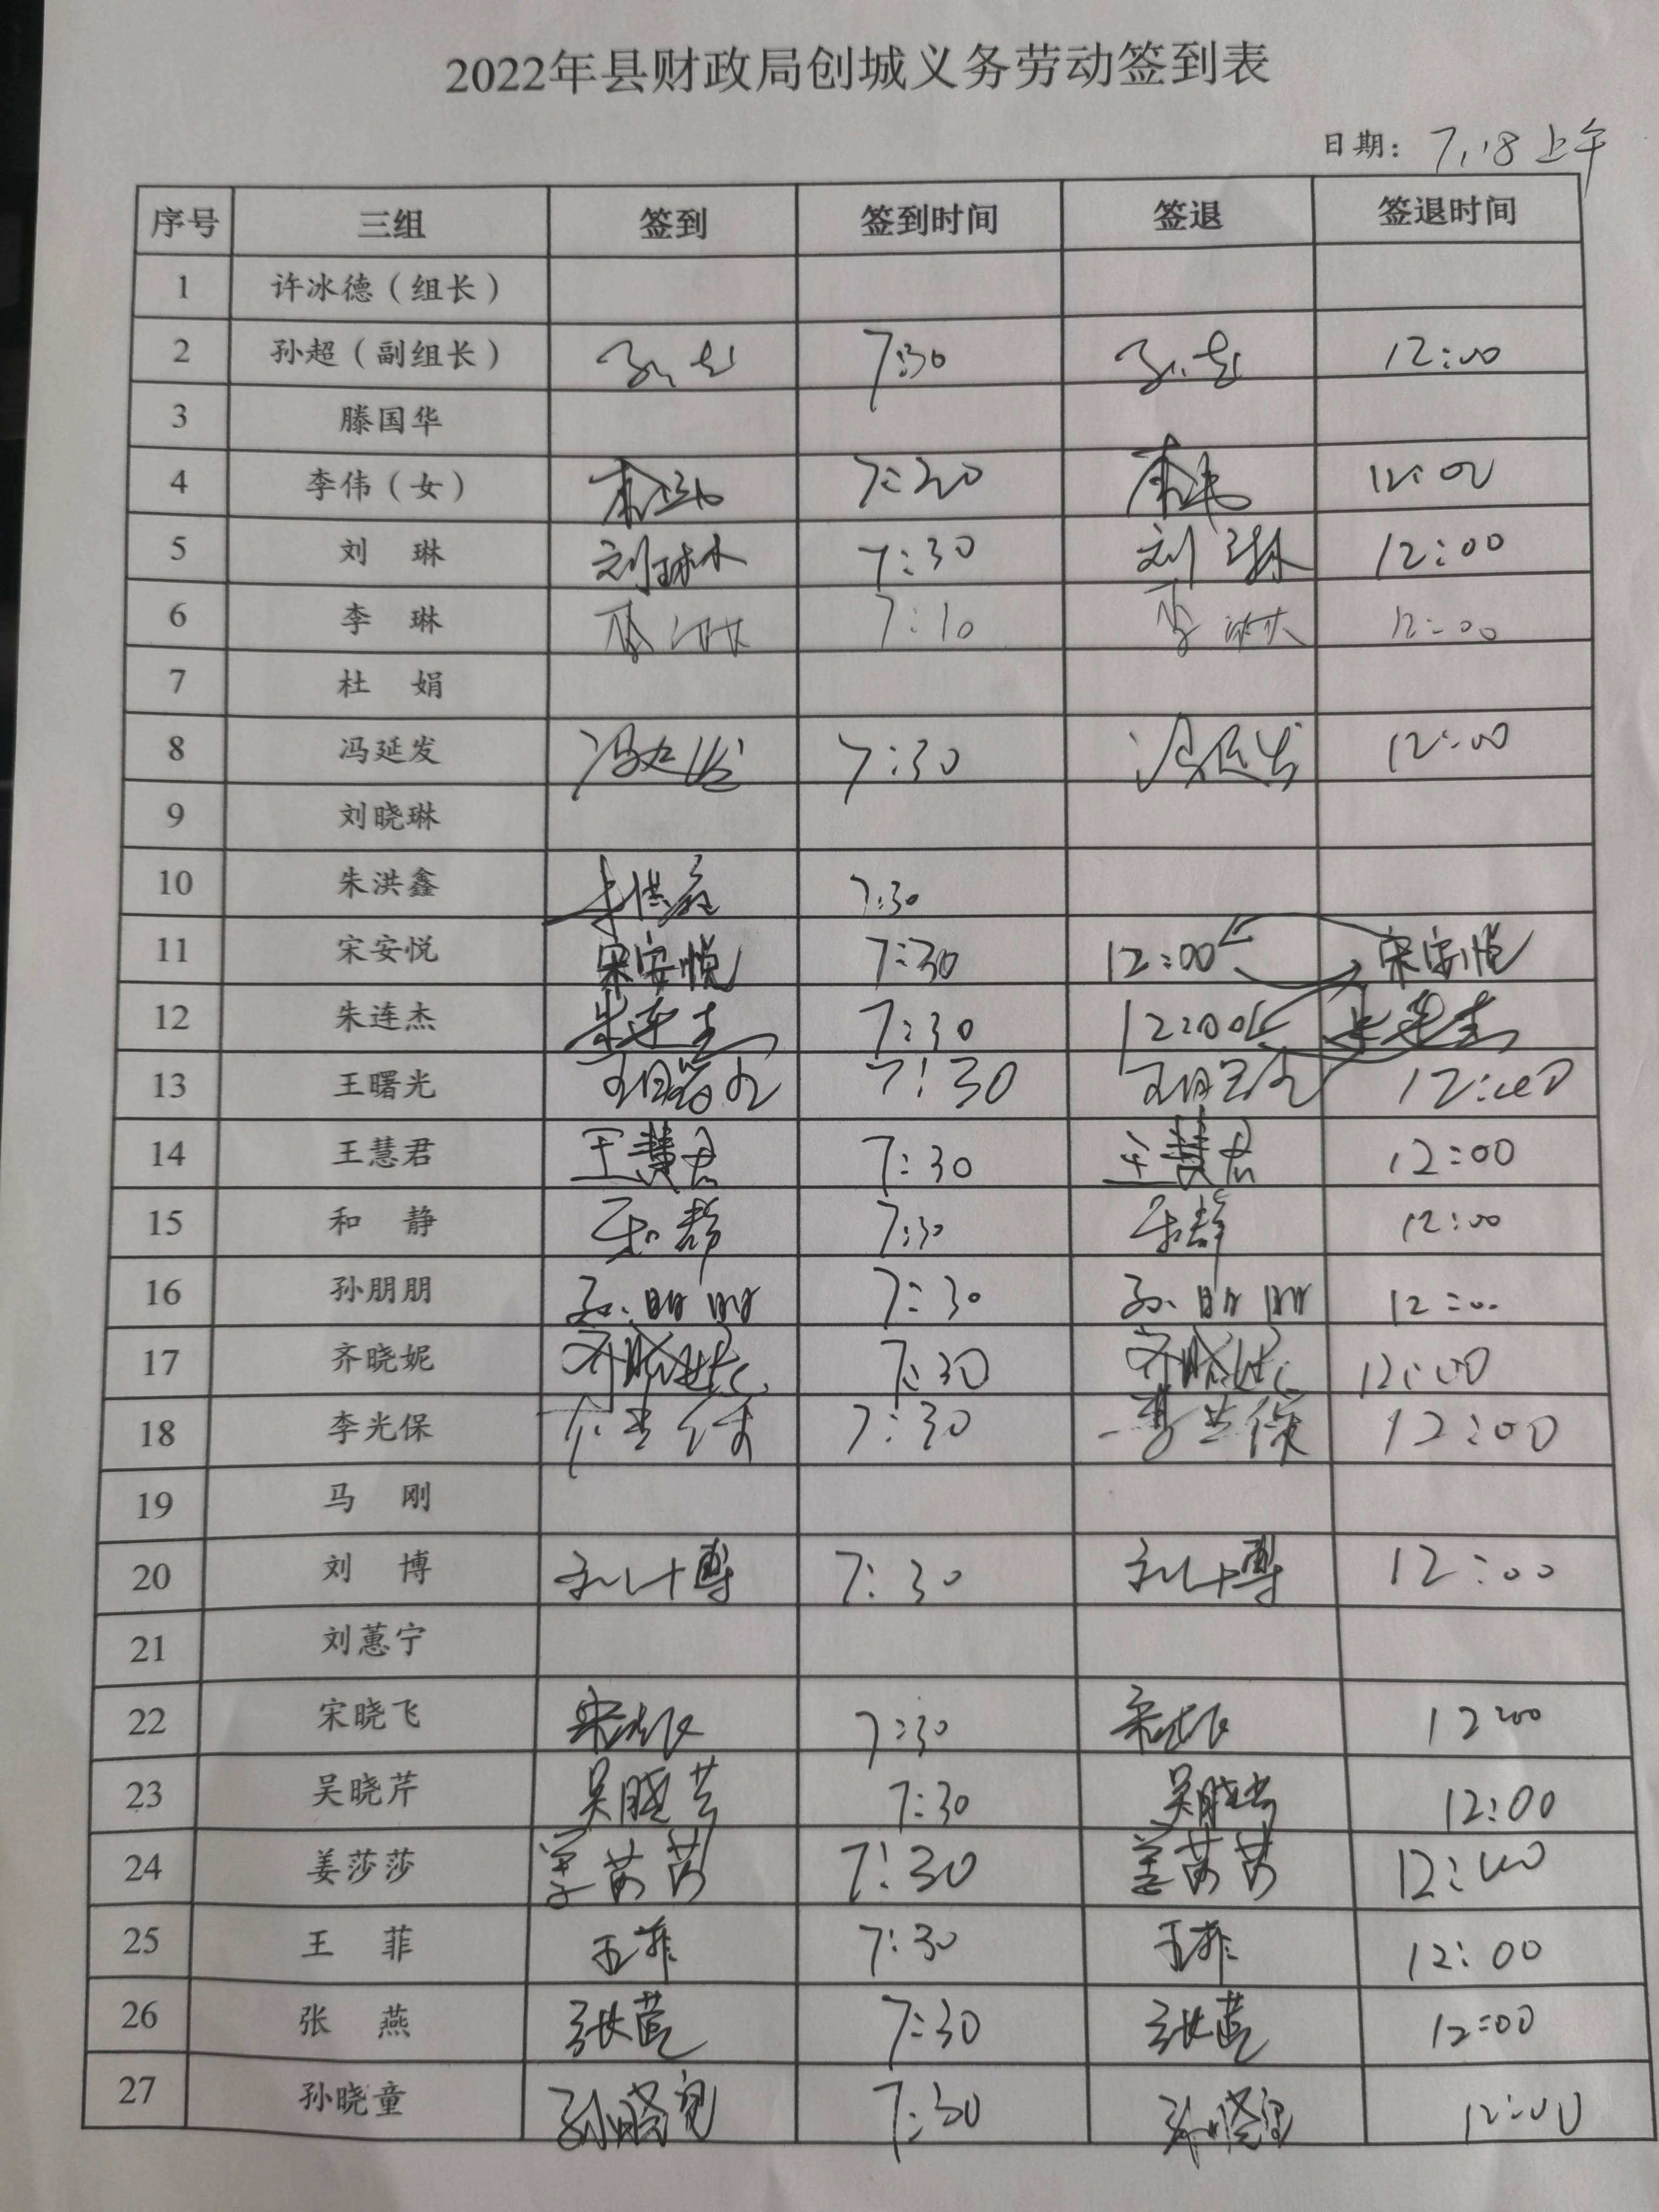 2022年县财政局创城义务劳动签到表
日期: 7.18 上午
序号 三组 签到 签到时间 签退 签退时间
1 许冰德（组长）
2 孙超（副组长） 孙超 7:30 孙超 12:00
3 滕国华
4 李伟（女） 李伟 7:20 李伟 12:00
5 刘 琳 刘琳 7:30 刘琳 12:00
6 李 琳 李琳 7:10 李琳 12:00
7 杜 娟
8 冯延发 冯延发 7:30 冯延发 12:00
9 刘晓琳
10 朱洪鑫 朱洪鑫 7:30
11 宋安悦 宋安悦 7:30 12:00 宋安悦
12 朱连杰 朱连杰 7:30 12:00 朱连杰
13 王曙光 王曙光 7:30 王曙光 12:00
14 王慧君 王慧君 7:30 王慧君 12:00
15 和 静 和静 7:30 和静 12:00
16 孙朋朋 孙朋朋 7:30 孙朋朋 12:00
17 齐晓妮 齐晓妮 7:30 齐晓妮 12:00
18 李光保 李光保 7:30 李光保 12:00
19 马 刚
20 刘 博 刘博 7:30 刘博 12:00
21 刘蕙宁
22 宋晓飞 宋晓飞 7:30 宋晓飞 12:00
23 吴晓芹 吴晓芹 7:30 吴晓芹 12:00
24 姜莎莎 姜莎莎 7:30 姜莎莎 12:00
25 王 菲 王菲 7:30 王菲 12:00
26 张 燕 张燕 7:30 张燕 12:00
27 孙晓童 孙晓童 7:30 孙晓童 12:00